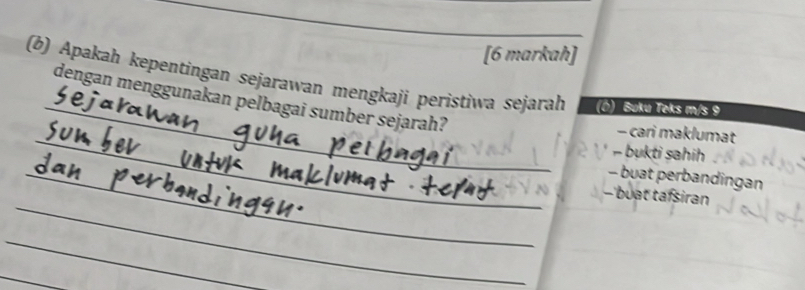 [6 markah]
(b) Apakah kepentingan sejarawan mengkaji peristiwa sejarah
dengan menggunakan pelbagai sumber sejarah?
sejarawan guna pelbagai
sumber untuk maklumat. tepat
dan perbandingan.
(b) Buku Teks m/s 9
– cari maklumat
– bukti sahih
– buat perbandingan
– buat tafsiran